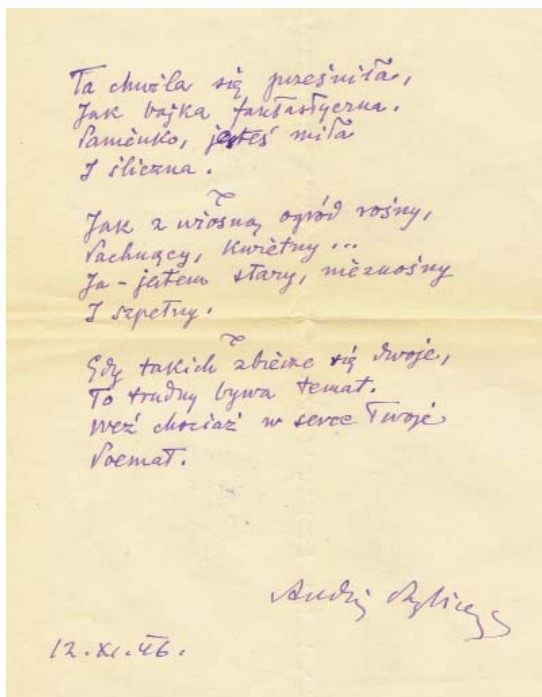 Ta chwila się prześniła,
Jak bajka fantastyczna.
Panienko, jesteś miła
I śliczna.
Jak z wiosną ogród rośny,
Pachnący, kwietny...
Ja - jestem stary, nieznośny
I szpetny.
Gdy takich zbierze się dwoje,
To trudny bywa temat.
Weź chociaż w serce Twoje
Poemat.
Andrzej
12.XI.46.